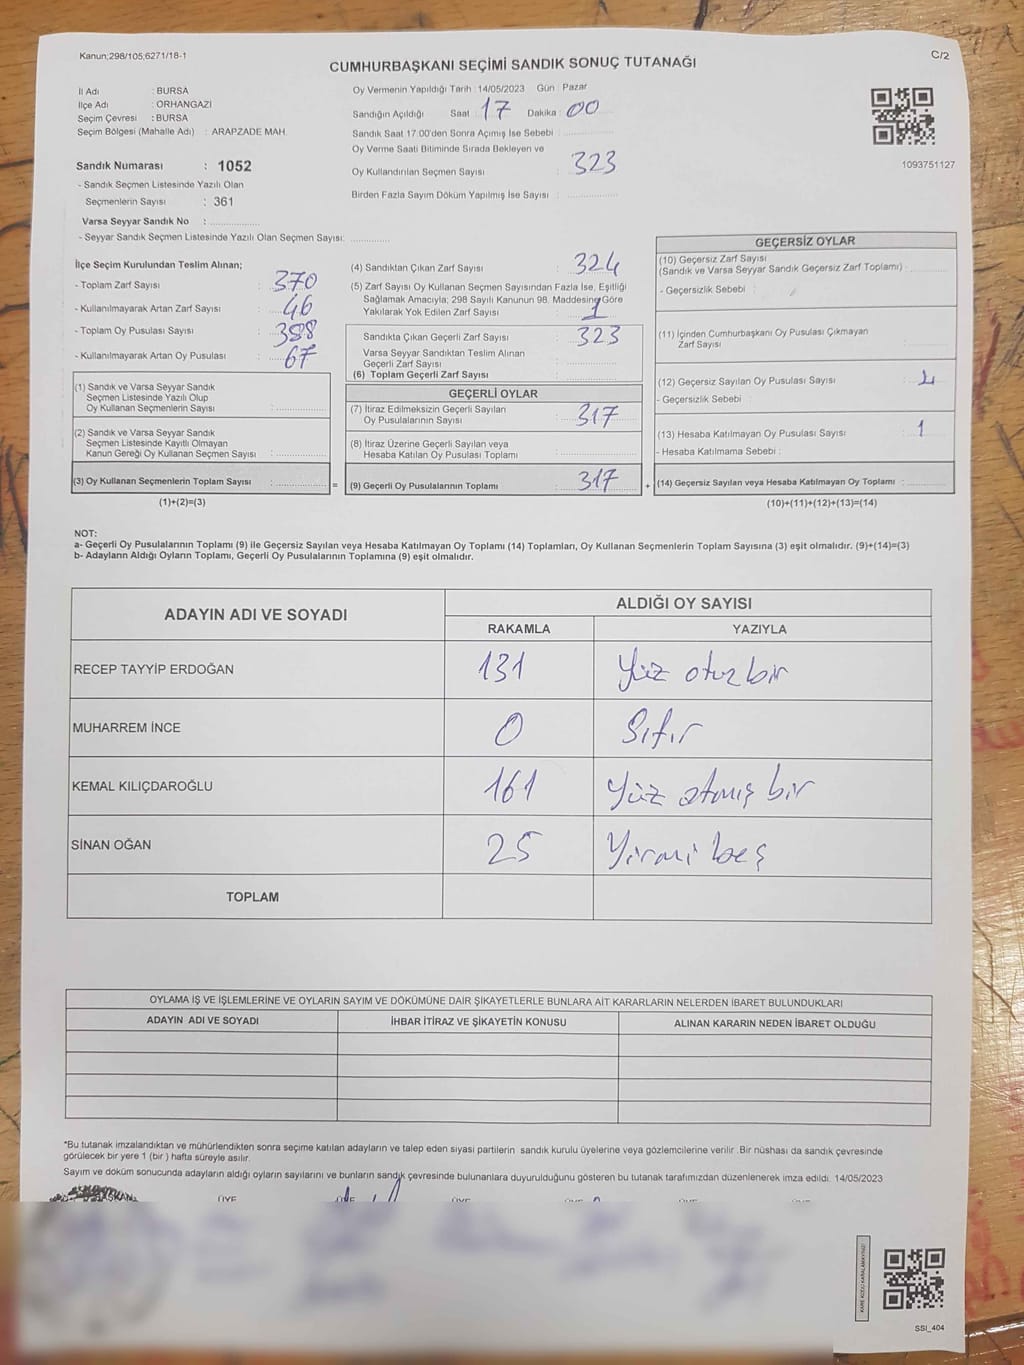 Kanun;298/105;6271/18-1
C/2
CUMHURBAŞKANI SEÇİMİ SANDIK SONUÇ TUTANAĞI
İl Adı : BURSA
İlçe Adı : ORHANGAZİ
Seçim Çevresi : BURSA
Seçim Bölgesi (Mahalle Adı) : ARAPZADE MAH.
Sandık Numarası : 1052
- Sandık Seçmen Listesinde Yazılı Olan
Seçmenlerin Sayısı : 361
Varsa Seyyar Sandık No :
- Seyyar Sandık Seçmen Listesinde Yazılı Olan Seçmen Sayısı:
Oy Vermenin Yapıldığı Tarih :14/05/2023 Gün : Pazar
Sandığın Açıldığı Saat : 17 Dakika : 00
Sandık Saat 17:00'den Sonra Açımış İse Sebebi :
Oy Verme Saati Bitiminde Sırada Bekleyen ve
Oy Kullandırılan Seçmen Sayısı : 323
Birden Fazla Sayım Döküm Yapılmış İse Sayısı :
1093751127
İlçe Seçim Kurulundan Teslim Alınan;
- Toplam Zarf Sayısı : 370
- Kullanılmayarak Artan Zarf Sayısı : 46
- Toplam Oy Pusulası Sayısı : 388
- Kullanılmayarak Artan Oy Pusulası : 67
(1) Sandık ve Varsa Seyyar Sandık
Seçmen Listesinde Yazılı Olup
Oy Kullanan Seçmenlerin Sayısı :
(2) Sandık ve Varsa Seyyar Sandık
Seçmen Listesinde Kayıtlı Olmayan
Kanun Gereği Oy Kullanan Seçmen Sayısı :
(3) Oy Kullanan Seçmenlerin Toplam Sayısı :
(1)+(2)=(3)
(4) Sandıktan Çıkan Zarf Sayısı : 324
(5) Zarf Sayısı Oy Kullanan Seçmen Sayısından Fazla İse, Eşitliği
Sağlamak Amacıyla; 298 Sayılı Kanunun 98. Maddesine Göre
Yakılarak Yok Edilen Zarf Sayısı : 1
Sandıkta Çıkan Geçerli Zarf Sayısı : 323
Varsa Seyyar Sandıktan Teslim Alınan
Geçerli Zarf Sayısı :
(6) Toplam Geçerli Zarf Sayısı :
GEÇERLİ OYLAR
(7) İtiraz Edilmeksizin Geçerli Sayılan
Oy Pusulalarının Sayısı : 317
(8) İtiraz Üzerine Geçerli Sayılan veya
Hesaba Katılan Oy Pusulası Toplamı :
= (9) Geçerli Oy Pusulalarının Toplamı : 317
GEÇERSİZ OYLAR
(10) Geçersiz Zarf Sayısı
(Sandık ve Varsa Seyyar Sandık Geçersiz Zarf Toplamı) :
- Geçersizlik Sebebi :
(11) İçinden Cumhurbaşkanı Oy Pusulası Çıkmayan
Zarf Sayısı :
(12) Geçersiz Sayılan Oy Pusulası Sayısı :
- Geçersizlik Sebebi :
(13) Hesaba Katılmayan Oy Pusulası Sayısı : 1
- Hesaba Katılmama Sebebi :
+ (14) Geçersiz Sayılan veya Hesaba Katılmayan Oy Toplamı :
(10)+(11)+(12)+(13)=(14)
NOT:
a- Geçerli Oy Pusulalarının Toplamı (9) ile Geçersiz Sayılan veya Hesaba Katılmayan Oy Toplamı (14) Toplamları, Oy Kullanan Seçmenlerin Toplam Sayısına (3) eşit olmalıdır. (9)+(14)=(3)
b- Adayların Aldığı Oyların Toplamı, Geçerli Oy Pusulalarının Toplamına (9) eşit olmalıdır.
ADAYIN ADI VE SOYADI
ALDIĞI OY SAYISI
RAKAMLA YAZIYLA
RECEP TAYYİP ERDOĞAN 131 Yüz otuz bir
MUHARREM İNCE 0 Sıfır
KEMAL KILIÇDAROĞLU 161 Yüz atmış bir
SİNAN OĞAN 25 Yirmi beş
TOPLAM
OYLAMA İŞ VE İŞLEMLERİNE VE OYLARIN SAYIM VE DÖKÜMÜNE DAİR ŞİKAYETLERLE BUNLARA AİT KARARLARIN NELERDEN İBARET BULUNDUKLARI
ADAYIN ADI VE SOYADI İHBAR İTİRAZ VE ŞİKAYETİN KONUSU ALINAN KARARIN NEDEN İBARET OLDUĞU
*Bu tutanak imzalandıktan ve mühürlendikten sonra seçime katılan adayların ve talep eden siyasi partilerin sandık kurulu üyelerine veya gözlemcilerine verilir .Bir nüshası da sandık çevresinde
görülecek bir yere 1 (bir ) hafta süreyle asılır.
Sayım ve döküm sonucunda adayların aldığı oyların sayılarını ve bunların sandık çevresinde bulunanlara duyurulduğunu gösteren bu tutanak tarafımızdan düzenlenerek imza edildi. 14/05/2023
BAŞKAN ÜYE ÜYE ÜYE ÜYE ÜYE
KARE KODU KARALAMAYINIZ!
SSI_404